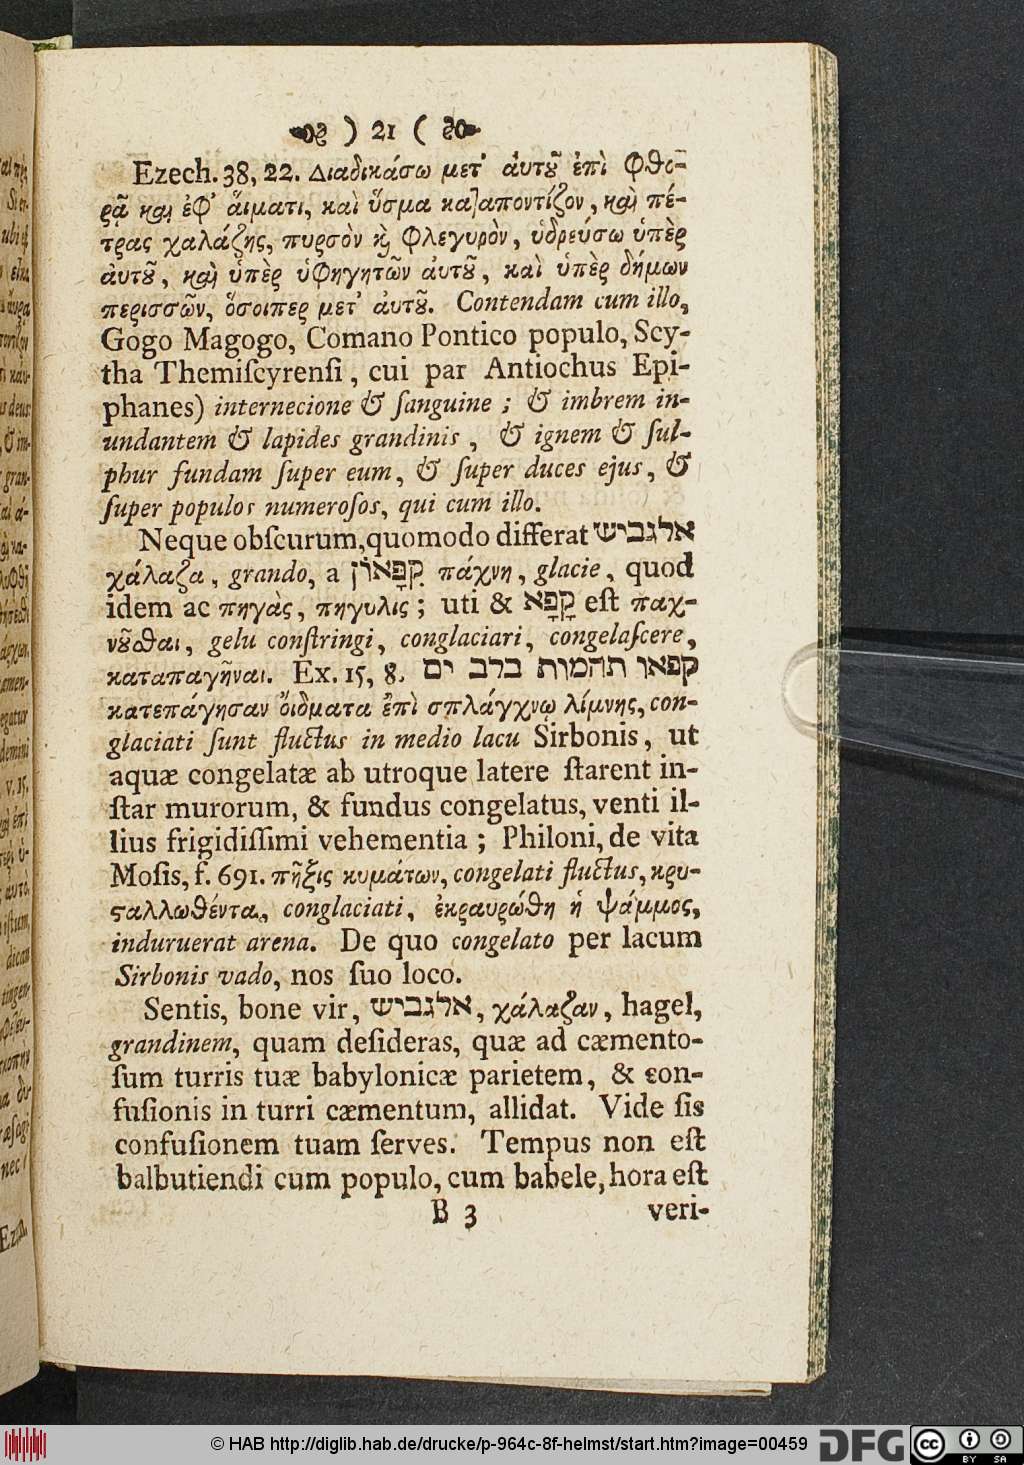 ) 21 (
Ezech. 38, 22. Διαδικάσω μετ' ἀυτῦ ἐπὶ Φθο-
ρᾷ καὶ ἐφ' ἅιματι, καὶ ὕσμα καταποντίζον, καὶ πέ-
τρας χαλάζης, πυρσὸν κὶ φλεγυρὸν, ὑδρεύσω ὑπὲρ
ἀυτῦ, καὶ ὑπὲρ ὑφηγητῶν ἀυτῦ, καὶ ὑπὲρ δήμων
περισσῶν, ὅσοιπερ μετ' ἀυτῦ. Contendam cum illo,
Gogo Magogo, Comano Pontico populo, Scy-
tha Themiſcyrenſi, cui par Antiochus Epi-
phanes) internecione & ſanguine ; & imbrem in-
undantem & lapides grandinis , & ignem & ſul-
phur fundam ſuper eum, & ſuper duces ejus, &
ſuper populos numeroſos, qui cum illo.
Neque obſcurum, quomodo differat אלגביש
χάλαζα, grando, a קִפָּאוֹן πάχνη, glacie, quod
idem ac πηγὰς, πηγυλις ; uti & קָפָא eſt παχ-
νῦσθαι, gelu conſtringi, conglaciari, congelaſcere,
καταπαγῆναι. Ex. 15, 8. קפאו תהמות בלב ים
κατεπάγησαν ὄιδματα ἐπὶ σπλάγχνῳ λίμνης, con-
glaciati ſunt fluctus in medio lacu Sirbonis, ut
aquæ congelatæ ab utroque latere ſtarent in-
ſtar murorum, & fundus congelatus, venti il-
lius frigidiſſimi vehementia ; Philoni, de vita
Moſis, f. 691. πῆξις κυμάτων, congelati fluctus, κρυ-
ϛαλλωθέντα, conglaciati, ἐκραυρώθη ἡ ψάμμος,
induruerat arena. De quo congelato per lacum
Sirbonis vado, nos ſuo loco.
Sentis, bone vir, אלגביש, χάλαζαν, hagel,
grandinem, quam deſideras, quæ ad cæmento-
ſum turris tuæ babylonicæ parietem, & con-
fuſionis in turri cæmentum, allidat. Vide ſis
confuſionem tuam ſerves. Tempus non eſt
balbutiendi cum populo, cum babele, hora eſt
B 3 veri-
© HAB http://diglib.hab.de/drucke/p-964c-8f-helmst/start.htm?image=00459
DFG
cc BY SA